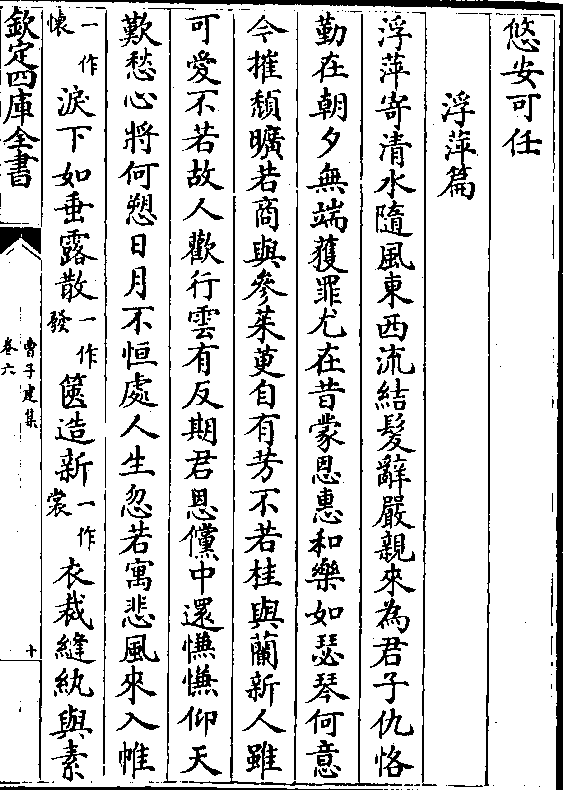 悠安可任
浮萍篇
浮萍寄清水隨風東西流結髮辭嚴親來為君子仇恪
勤在朝夕無端獲罪尤在昔蒙恩惠和樂如瑟琴何意
今摧頹曠若商與參茱萸自有芳不若桂與蘭新人雖
可愛不若故人歡行雲有反期君恩儻中還慊慊仰天
歎愁心將何愬日月不恒處人生忽若寓悲風來入帷
一作懷淚下如垂露散一作發篋造新一作裳衣裁縫紈與素
欽定四庫全書
曹子建集
卷六
十